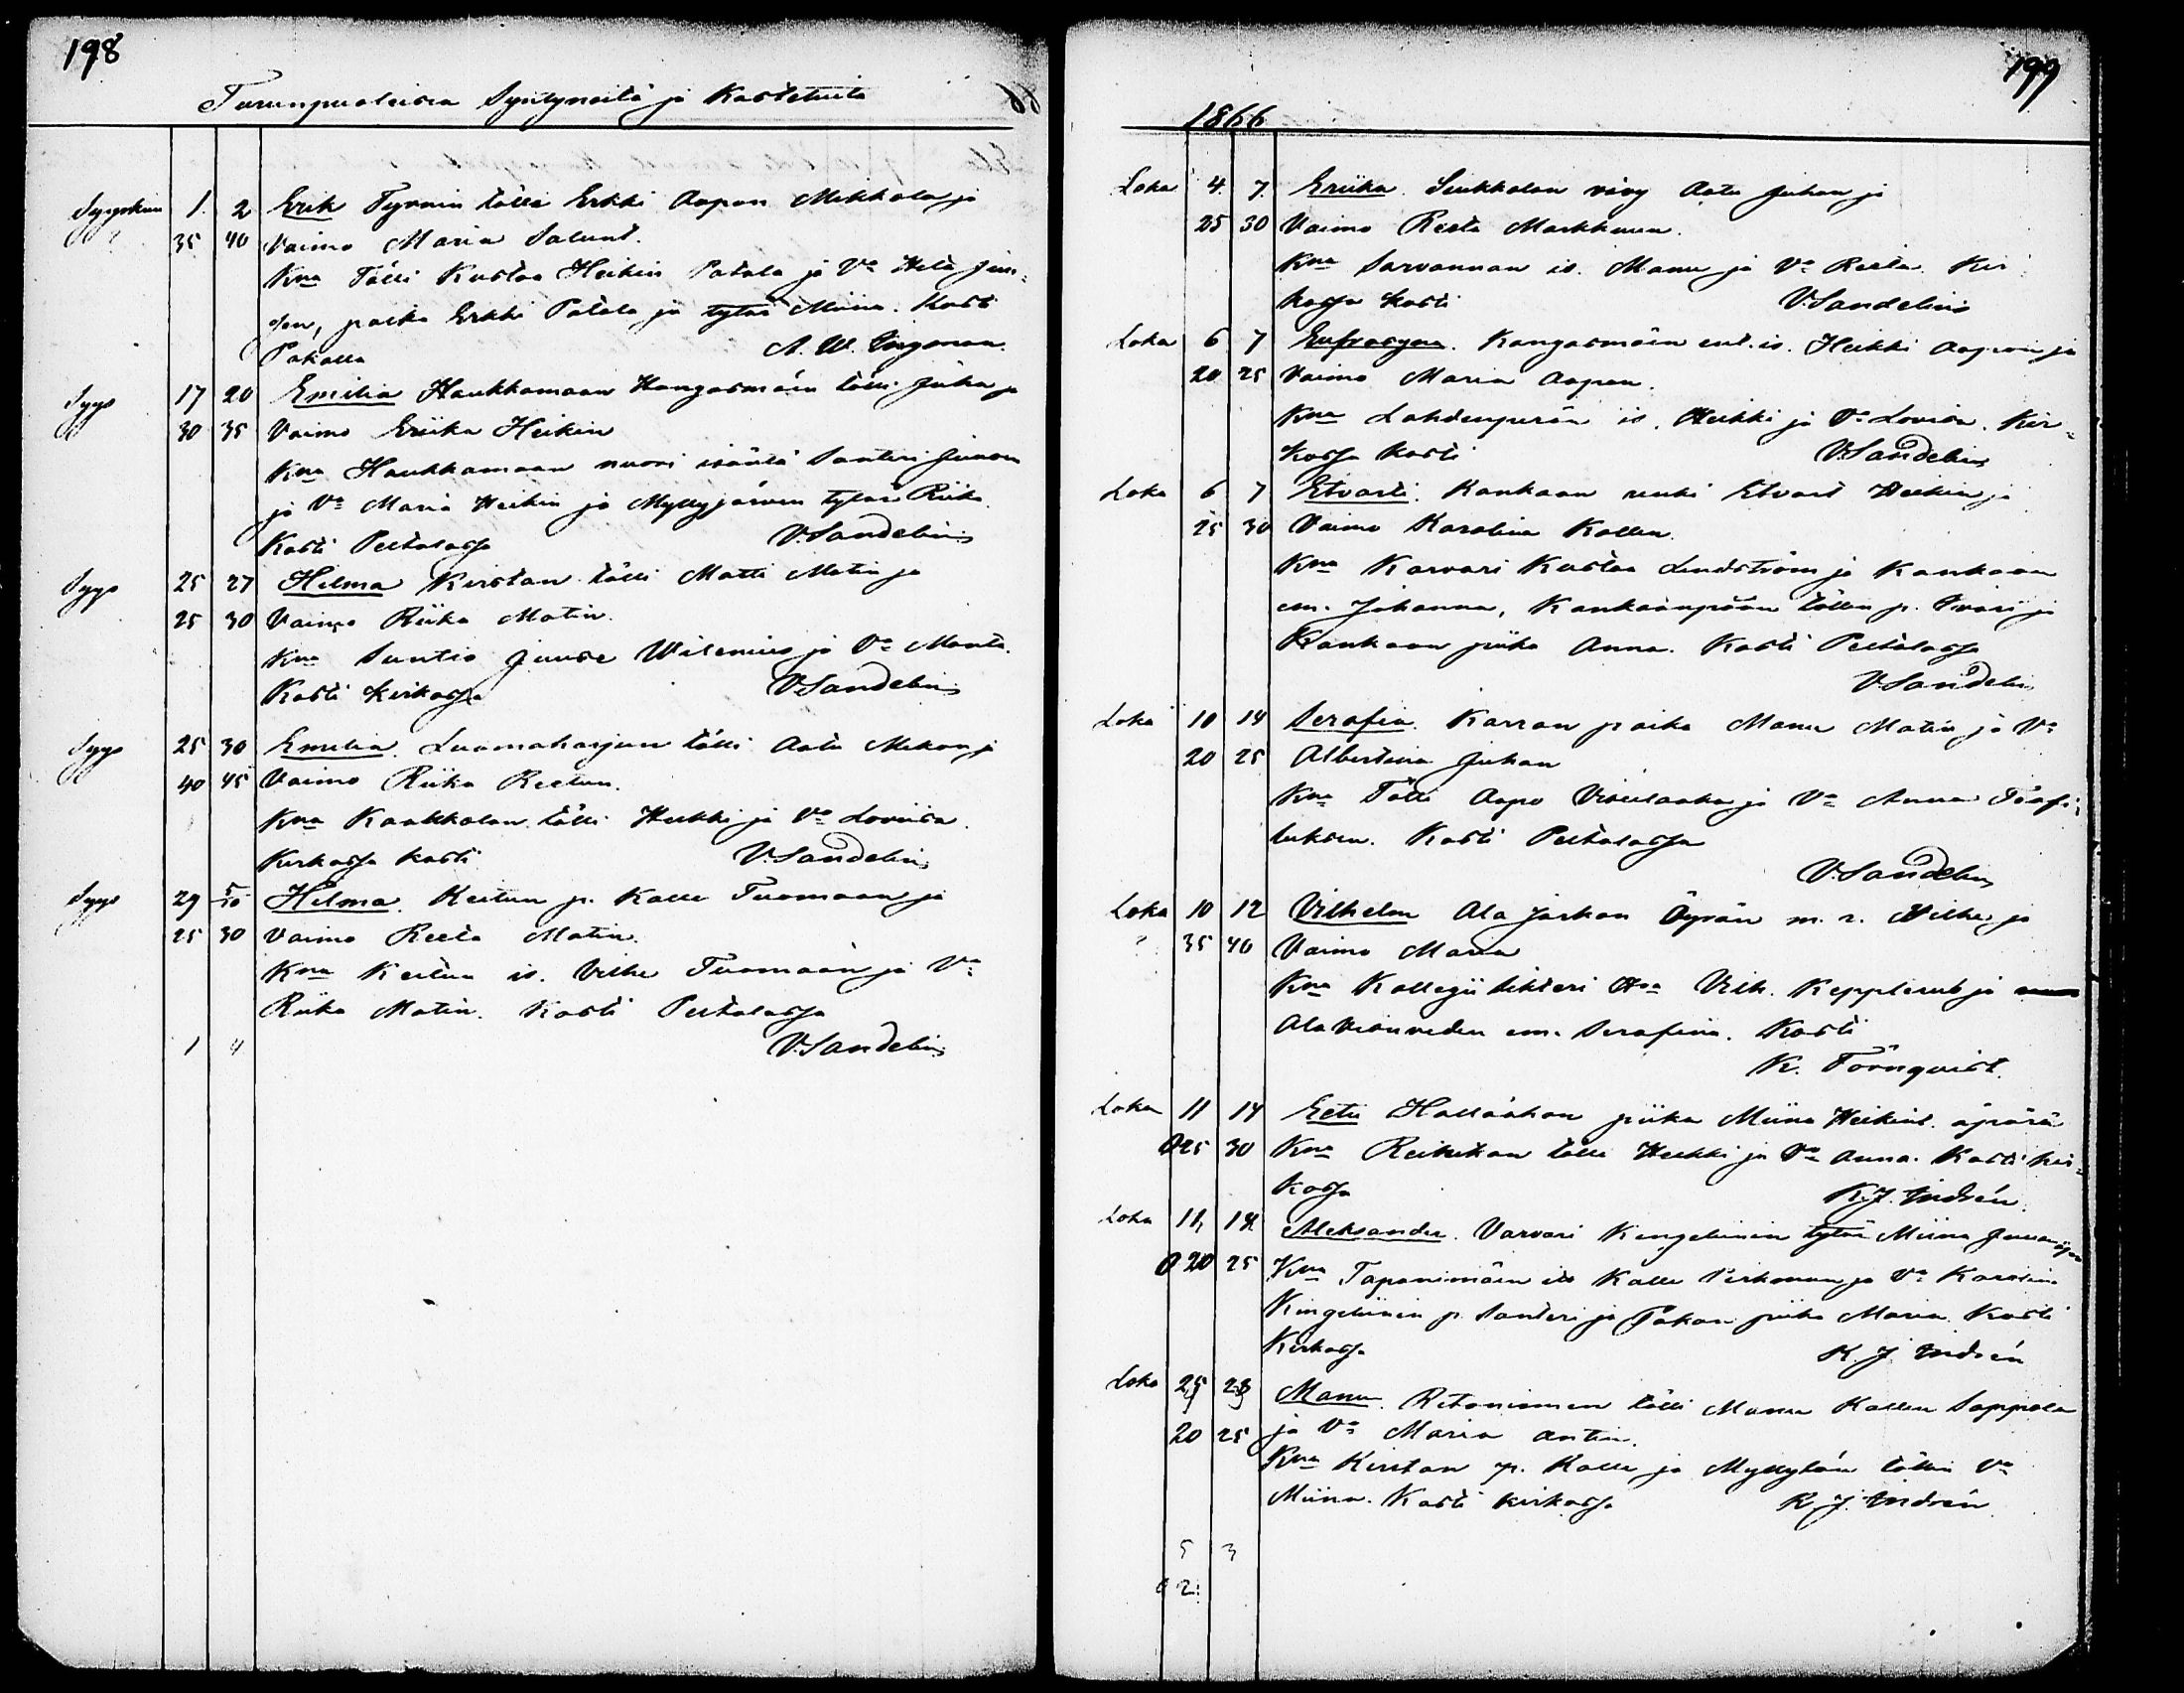 198
Turunpuoleisia Syntyneitä ja Kastetuita
Syyskuu 1. 2 Erik Tyrnin tölli Erkki Aapon Mikkola ja
35 40 Vaimo Maria Salunt.
Kna Tölli Kustaa Heikin Patala ja Va Heta
poika Erkki Patala ja tytär Miina. Kasti
Pakalla A. W. Ingman.
Syys 17 20 Emilia Haukkamaan Kangasmäen tölli Juha ja
30 35 Vaimo Eriika Heikin
Kna Haukkamaan nuori isäntä Santeri Junnon
ja Va Maria Heikin ja Myllyjärven tytär Riika.
Kasti Peltalassa V. Sandelin
Syys 25 27 Hilma Kirstan tölli Matti Matin ja
25 30 Vaimo Riika Matin.
Kna Suntio Juuse Wilenius ja Va Manta.
Kasti Kirkossa V. Sandelin
Syys 25 30 Emilia. Luomaharjun tölli Aatu Mikon ja
40 45 Vaimo Riika Reetun.
Kna Kaakkolan tölli Heikki ja Va Loviisa.
Kirkossa kasti V. Sandelin
Syys 29 5/10 Hilma. Keitun p. Kalle Tuomaan ja
25 30 Vaimo Reeta Matin.
Kna Keitun is. Vilhe Tuomaan ja Va
Riika Matin. Kasti Peltalassa
1 4 V. Sandelin
199
1866
Loka 4. 7. Eriika. Seukkalan vävy Aatu Juhan ja
25 30 Vaimo Reeta Markkuun.
Kna Sarvannan is. Manu ja Va Reeta. Kir-
kossa kasti V. Sandelin
Loka 6 7 Eufrosyna. Kangasmäen ent. is. Heikki Aapon ja
20 25 Vaimo Maria Aapon.
Kna Lahdenperän is. Heikki ja Va Lovisa. Kir-
kossa kasti V. Sandelin
Loka 6 7 Etvarti. Kankaan renki Etvart Heikin ja
25 30 Vaimo Karolina Kallen
Kna Karvari Kustaa Lindström ja Kankaan
em. Johanna, Kankaanpään töllin p. Ivari ja
Kankaan piika Anna. Kasti Peltalassa
V. Sandelin
Loka 10 14 Serafia. Karran poika Manu Matin ja Va
20 25 Albertina Juhan
Kna Tölli Aapo ja Va Anna Teofi-
luksen. Kasti Peltalassa
V. Sandelin
Loka 10 12 Vilhelm Ala Jaskan Öyrän m. r. Vilhe ja
" 35 40 Vaimo Maria
Kna Kollegii Sihteri Hra Vilh. Kepplerus ja
Ala em. Serafina. Kasti
K. Törnqvist.
Loka 11 14 Eetu Hallaahan piika Miina Heikint. äpärä
0 25 30 Kna Reikikan tölli Heikki ja Va Anna. Kasti kir-
kossa K. J. Indrén.
Loka 11, 14 Aleksander. Varvari Kingeliinin tytär Miina
0 20 25 Kna Tapanimäen is Kalle Pirkonen ja Va Karolina
Kingeliinin p. Santeri ja Pakan piika Maria. Kasti
Kirkossa K. J. Indrén
Loka 25 28 Manu. Retoniemen tölli Manu Kallen Sappala
20 25 ja Va Maria Antin.
Kna Kirstan p. Kalle ja Myllylän töllin Va
Miina. Kasti kirkossa K. J. Indrén
5 3
0 2.